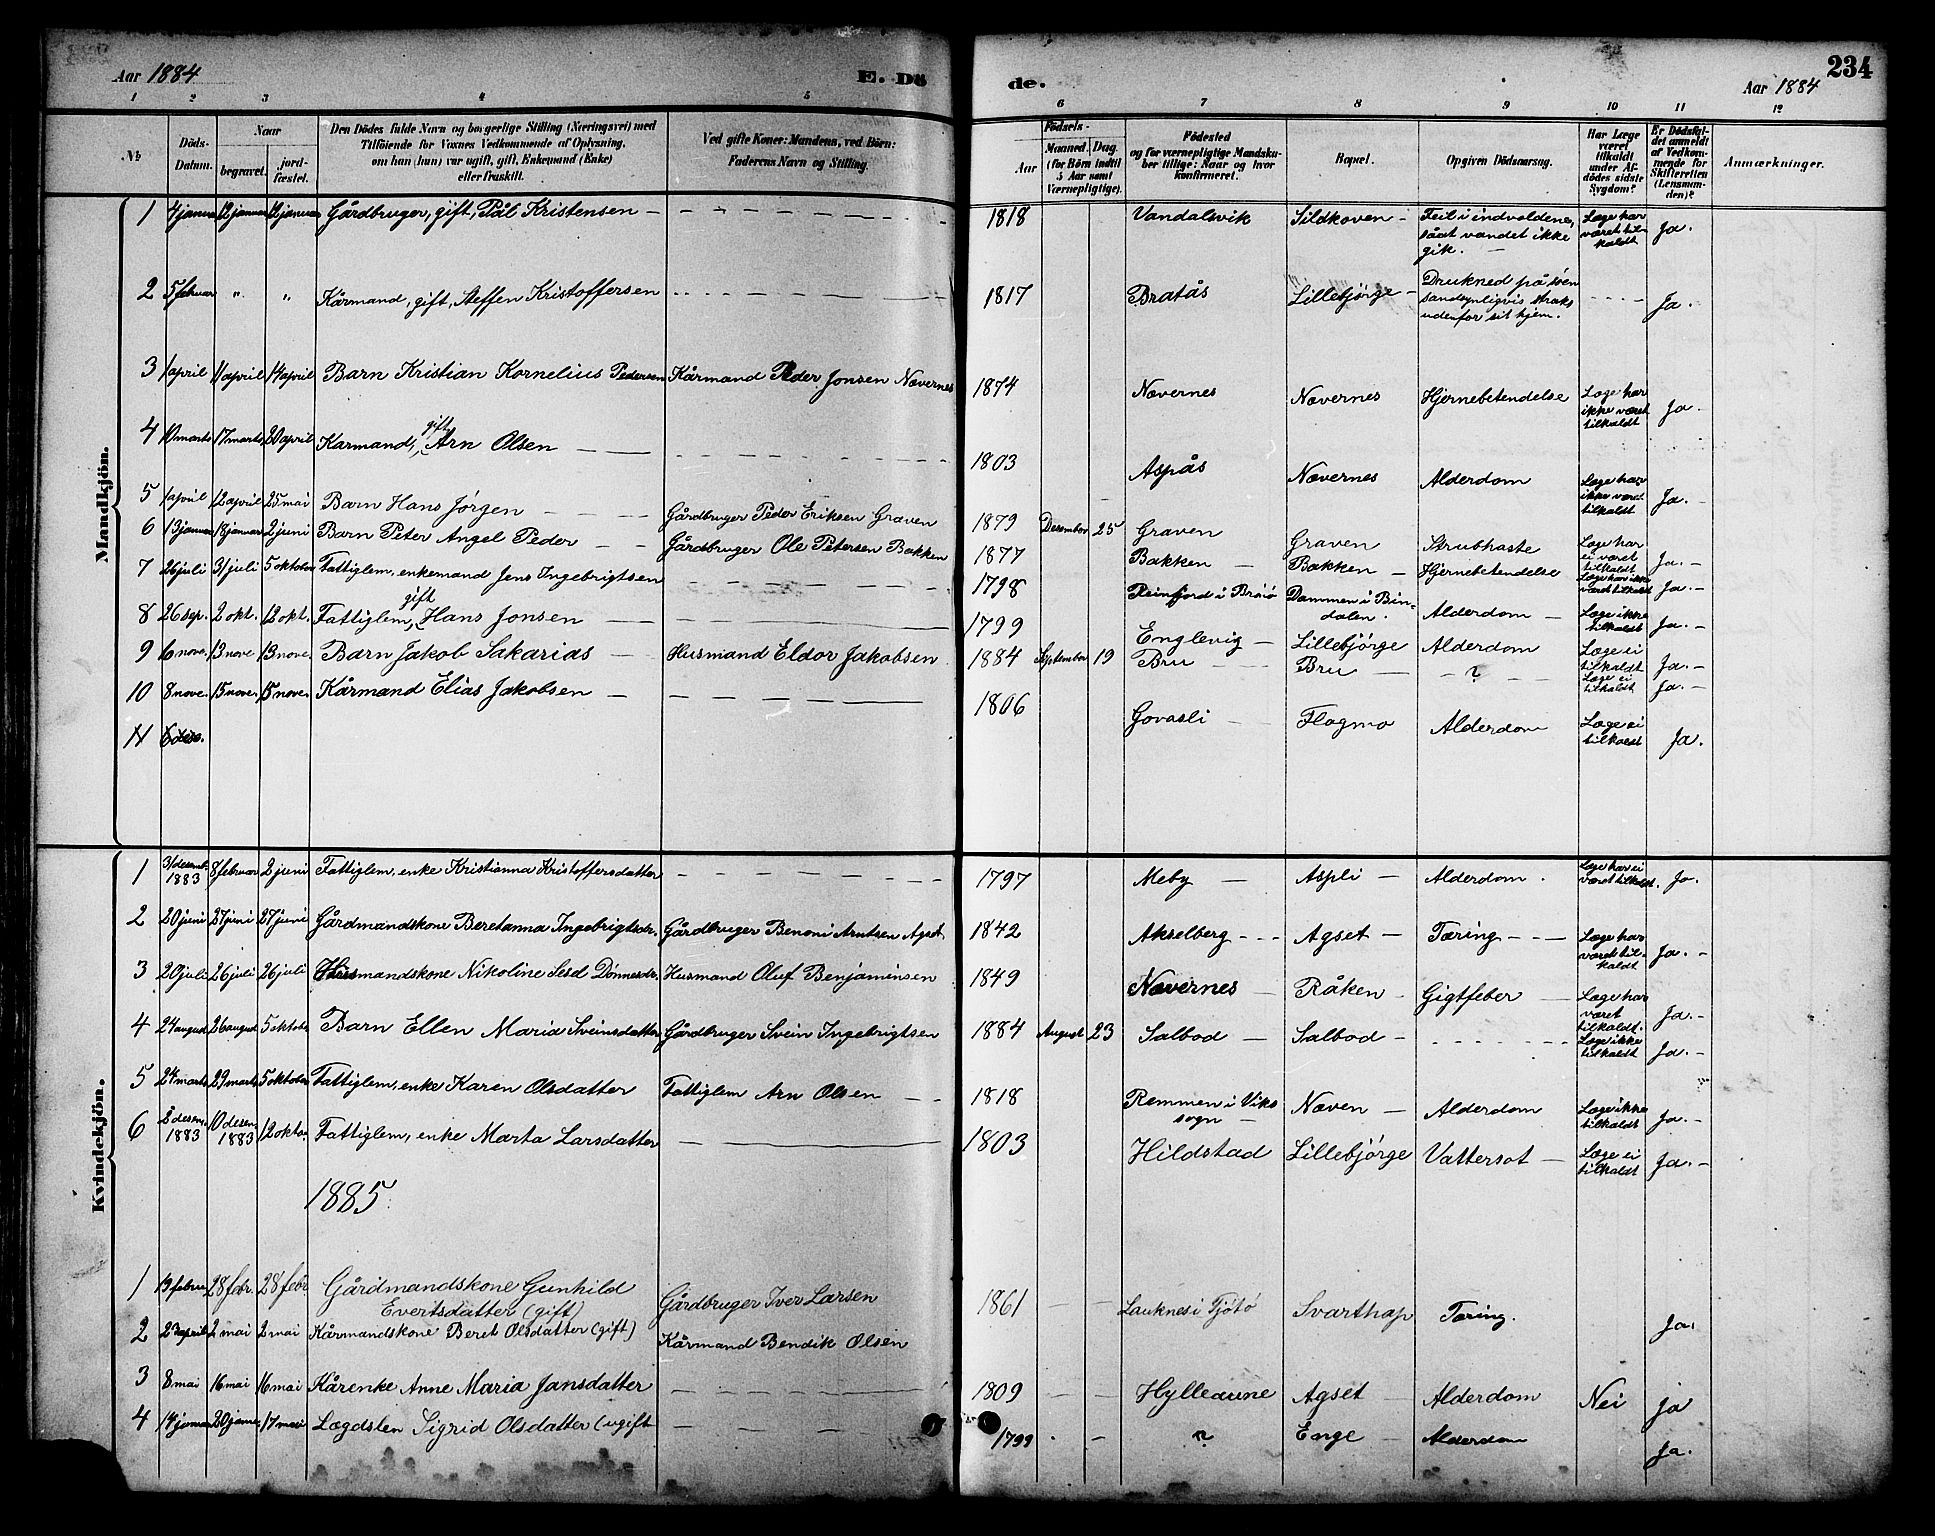 Aar 1884
E. Dö
de.
Aar 1884
234
1 2 3 4 5 6 7 8 9 10 11 12
№
Döds-Datum.
Naar
begravet.
jordfæstet.
Den Dödes fulde Navn og borgerlige Stilling (Næringsvei) med
Tilföiende for Voxnes Vedkommende af Oplysning,
om han (hun) var ugift, gift, Enkemand (Enke)
eller fraskilt.
Ved gifte Koner: Mandens, ved Börn:
Faderens Navn og Stilling.
Födsels-
Aar
Maaned. Dag.
(for Börn indtil
5 Aar samt
Værnepligtige).
Födested
og for værnepligtige Mandskaber tillige: Naar og hvor
konfirmeret.
Bopæl.
Opgiven Dödsaarsag.
Har Læge
været
tilkaldt
under Afdödes sidste
Sygdom?
Er Dödsfaldet anmeldt
af Vedkommende for
Skifteretten
(Lensmanden)?
Anmærkninger.
Mandkjön.
1 4 januar 12 januar 12 januar Gårdbruger, gift, Pål Kristensen 1818 Vandalsvik Sildkoven Feil i indvoldene, såat vandet ikke gik. Læge har været tilkaldt Ja.
2 5 februar " " Kårmand, gift, Steffen Kristoffersen 1817 Bratås Lillebjørge Druknet på søen sandsynligvis straks udenfor sit hjem. Ja.
3 1 april 11 april 14 april Barn Kristian Kornelius Pedersen Kårmand Peder Jonsen Nævernes 1874 Nævernes Nævernes Hjernebetendelse Læge har ikke været tilkaldt Ja.
4 10 marts 17 marts 20 april Karmand, gift, Arn Olsen 1803 Aspås Nævernes Alderdom Læge har ikke været tilkaldt Ja.
5 1 april 12 april 25 mai Barn Hans Jørgen Gårdbruger Peder Eriksen Graven 1879 Desember 25 Graven Graven Strubhaste Læge har ei været tilkaldt Ja.
6 13 januar 18 januar 2 juni Barn Peter Angel Peder Gårdbruger Ole Petersen Bakken 1877 Bakken Bakken Hjernebetendelse Læge har ikke været tilkaldt Ja.
7 26 juli 31 juli 5 oktober Fattiglem, enkemand Jens Ingebrigtsen 1798 Reinfjord i Brønø Dammen i Bindalen. Alderdom Læge ikke tilkaldt Ja.
8 26 sep. 2 okt. 12 okt. Fattiglem, gift Hans Jonsen 1799 Englevig Lillebjørge Alderdom Læge ei tilkaldt Ja.
9 6 nove. 13 nove 13 nove. Barn Jakob Sakarias Husmand Eldor Jakobsen 1884 September 19 Bru Bru ? Læge ei tilkaldt Ja.
10 8 nove. 15 nove. 15 nove. Kårmand Elias Jakobsen 1806 Govasli Flagmo Alderdom Læge ei tilkaldt Ja.
11
Kvindekjön.
1 31 desemb. 1883 8 februar 2 juni Fattiglem, enke Kristianna Kristoffersdatter 1797 Meby Aspli Alderdom. Læge har ei været tilkaldt. Ja.
2 20 juni 27 juni 27 juni Gårdmandskone Beretanna Ingebrigtsdr. Gårdbruger Benoni Arntsen Agset 1842 Akselberg Agset Tæring Læge har været tilkaldt Ja.
3 20 juli 26 juli 26 juli Husmandskone Nikoline Sesd Dønnesdr. Husmand Oluf Benjaminsen 1849 Nævernes Råken Gigtfeber Læge har været tilkaldt. Ja.
4 24 august 26 august 5 oktober Barn Ellen Maria Sveinsdatter Gårdbruger Svein Ingebrigtsen 1884 August 23 Salbod Salbod Læge ikke tilkaldt Ja.
5 24 marts 29 marts 5 oktober Fattiglem, enke Karen Olsdatter Fattiglem Arn Olsen 1818 Remmen i Viks sogn Næven Alderdom Læge ikke tilkaldt Ja.
6 2 desem. 1883 10 desem. 1883 12 okto. Fattiglem, enke Marta Larsdatter 1803 Hildstad Lillebjørge Vattersot Læge ei tilkaldt Ja.
1885.
1 19 februar 28 febr. 28 febr. Gårdmandskone Gunhild Evertsdatter (gift) Gårdbruger Iver Larsen 1861 Lauknes i Tjøtø Svarthap Tæring. Ja.
2 23 april 2 mai 2 mai Kårmandskone Beret Olsdatter (gift) Kårmand Bendik Olsen
3 8 mai 16 mai 16 mai Kårenke Anne Maria Jansdatter 1809 Hylleaune Agset Alderdom Nei ja
4 14 januar 20 januar 17 mai Lægdslem Sigrid Olsdatter (ugift 1799 ? Enge Alderdom Ja.